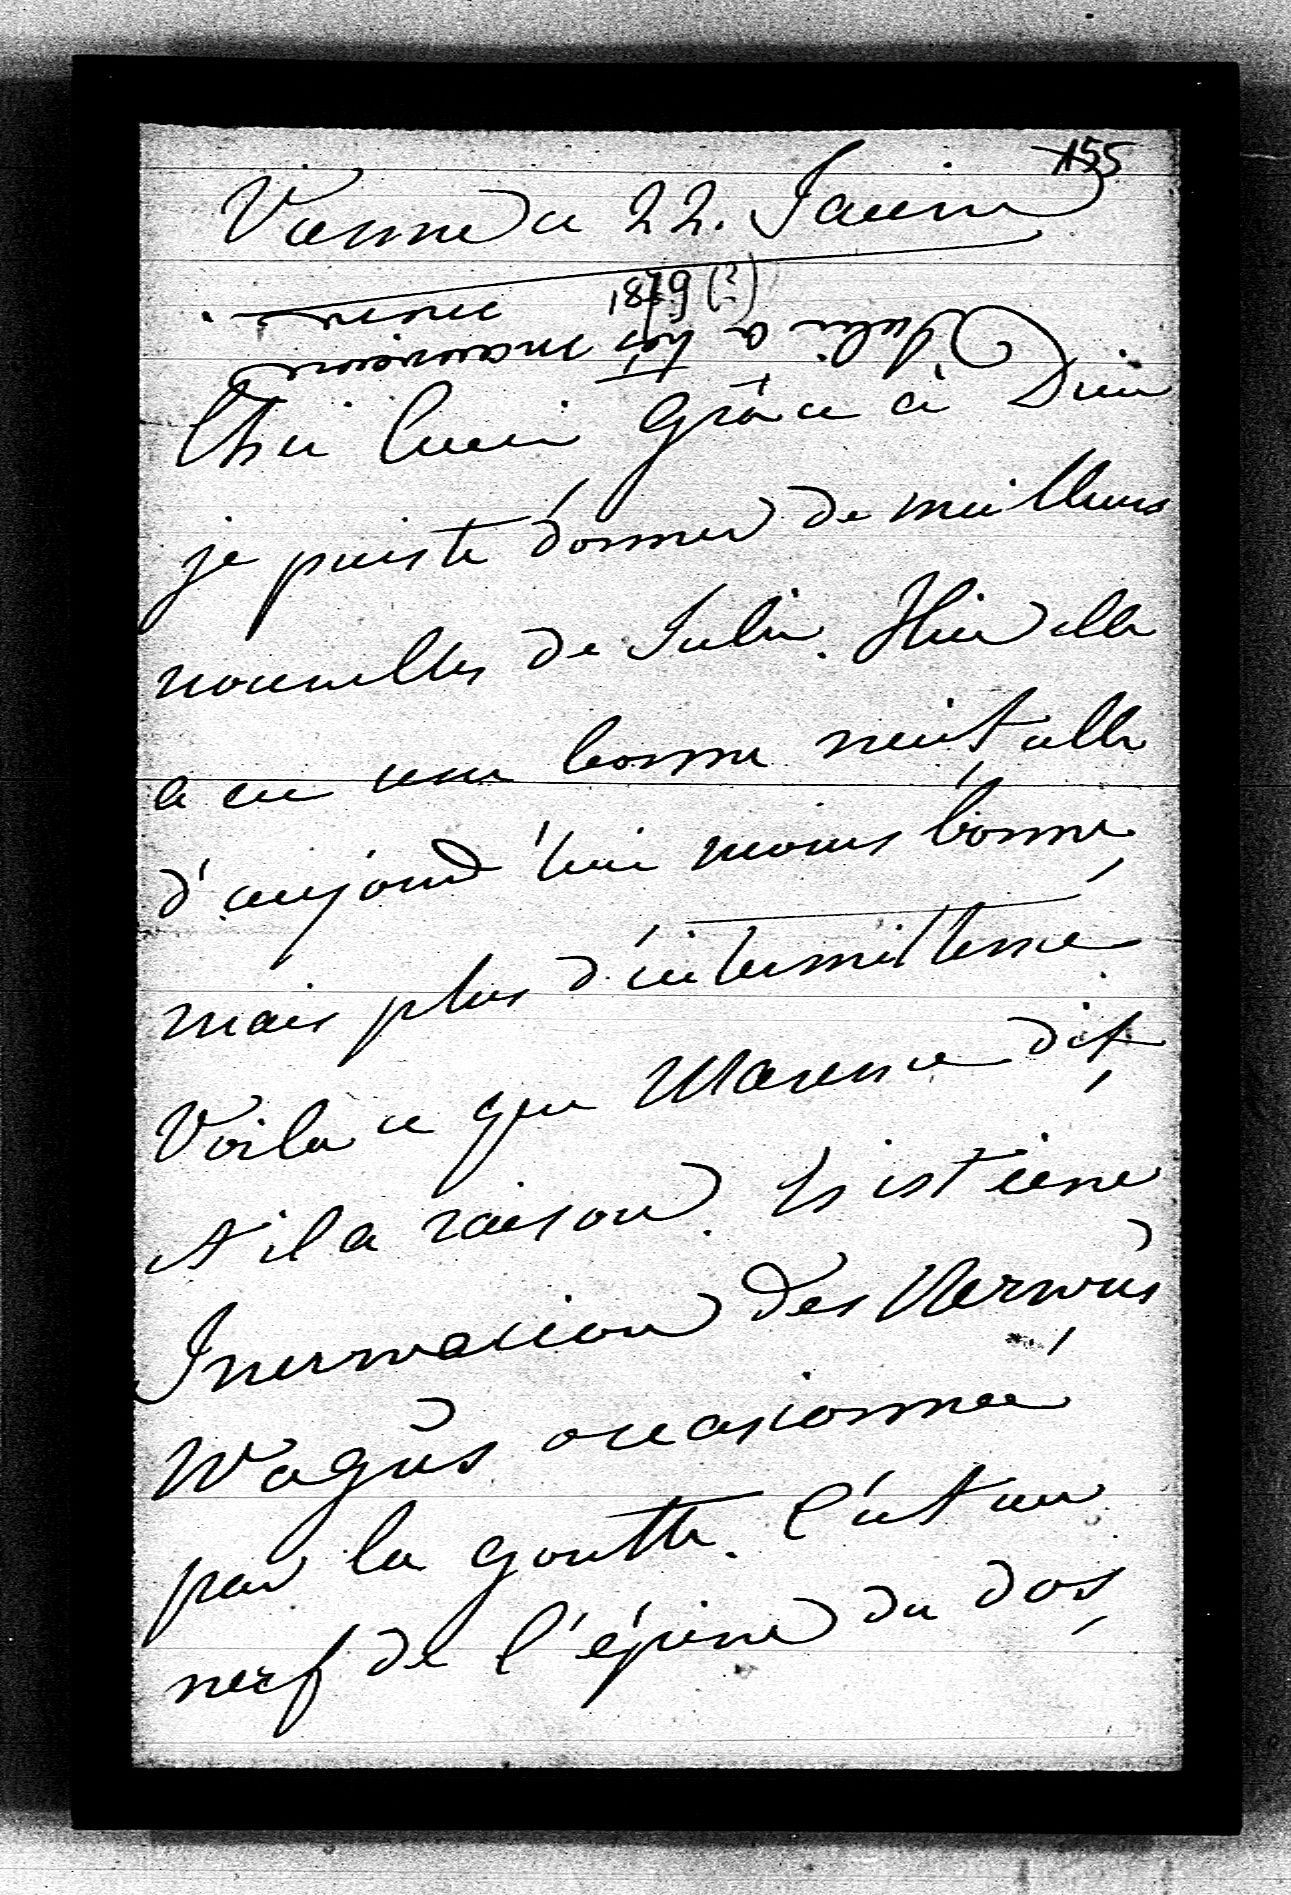 155
Vienne ce 22. Janvier
1879 (?)
Julie a très mauvaise
mine
Cher Lucien Grâce à Dieu
je puis te donner de meilleurs
nouvelles de Julie. Hier elle
a eu une bonne nuit celle
d'aujourd'hui moins bonne
mais plus d'intermittence
Voila ce que Marence dit
et il a raison. Es ist eine
Inervacion des Nervus
Wagus occasionnée
par la goutte. C'est un
nerf de l'épine du dos